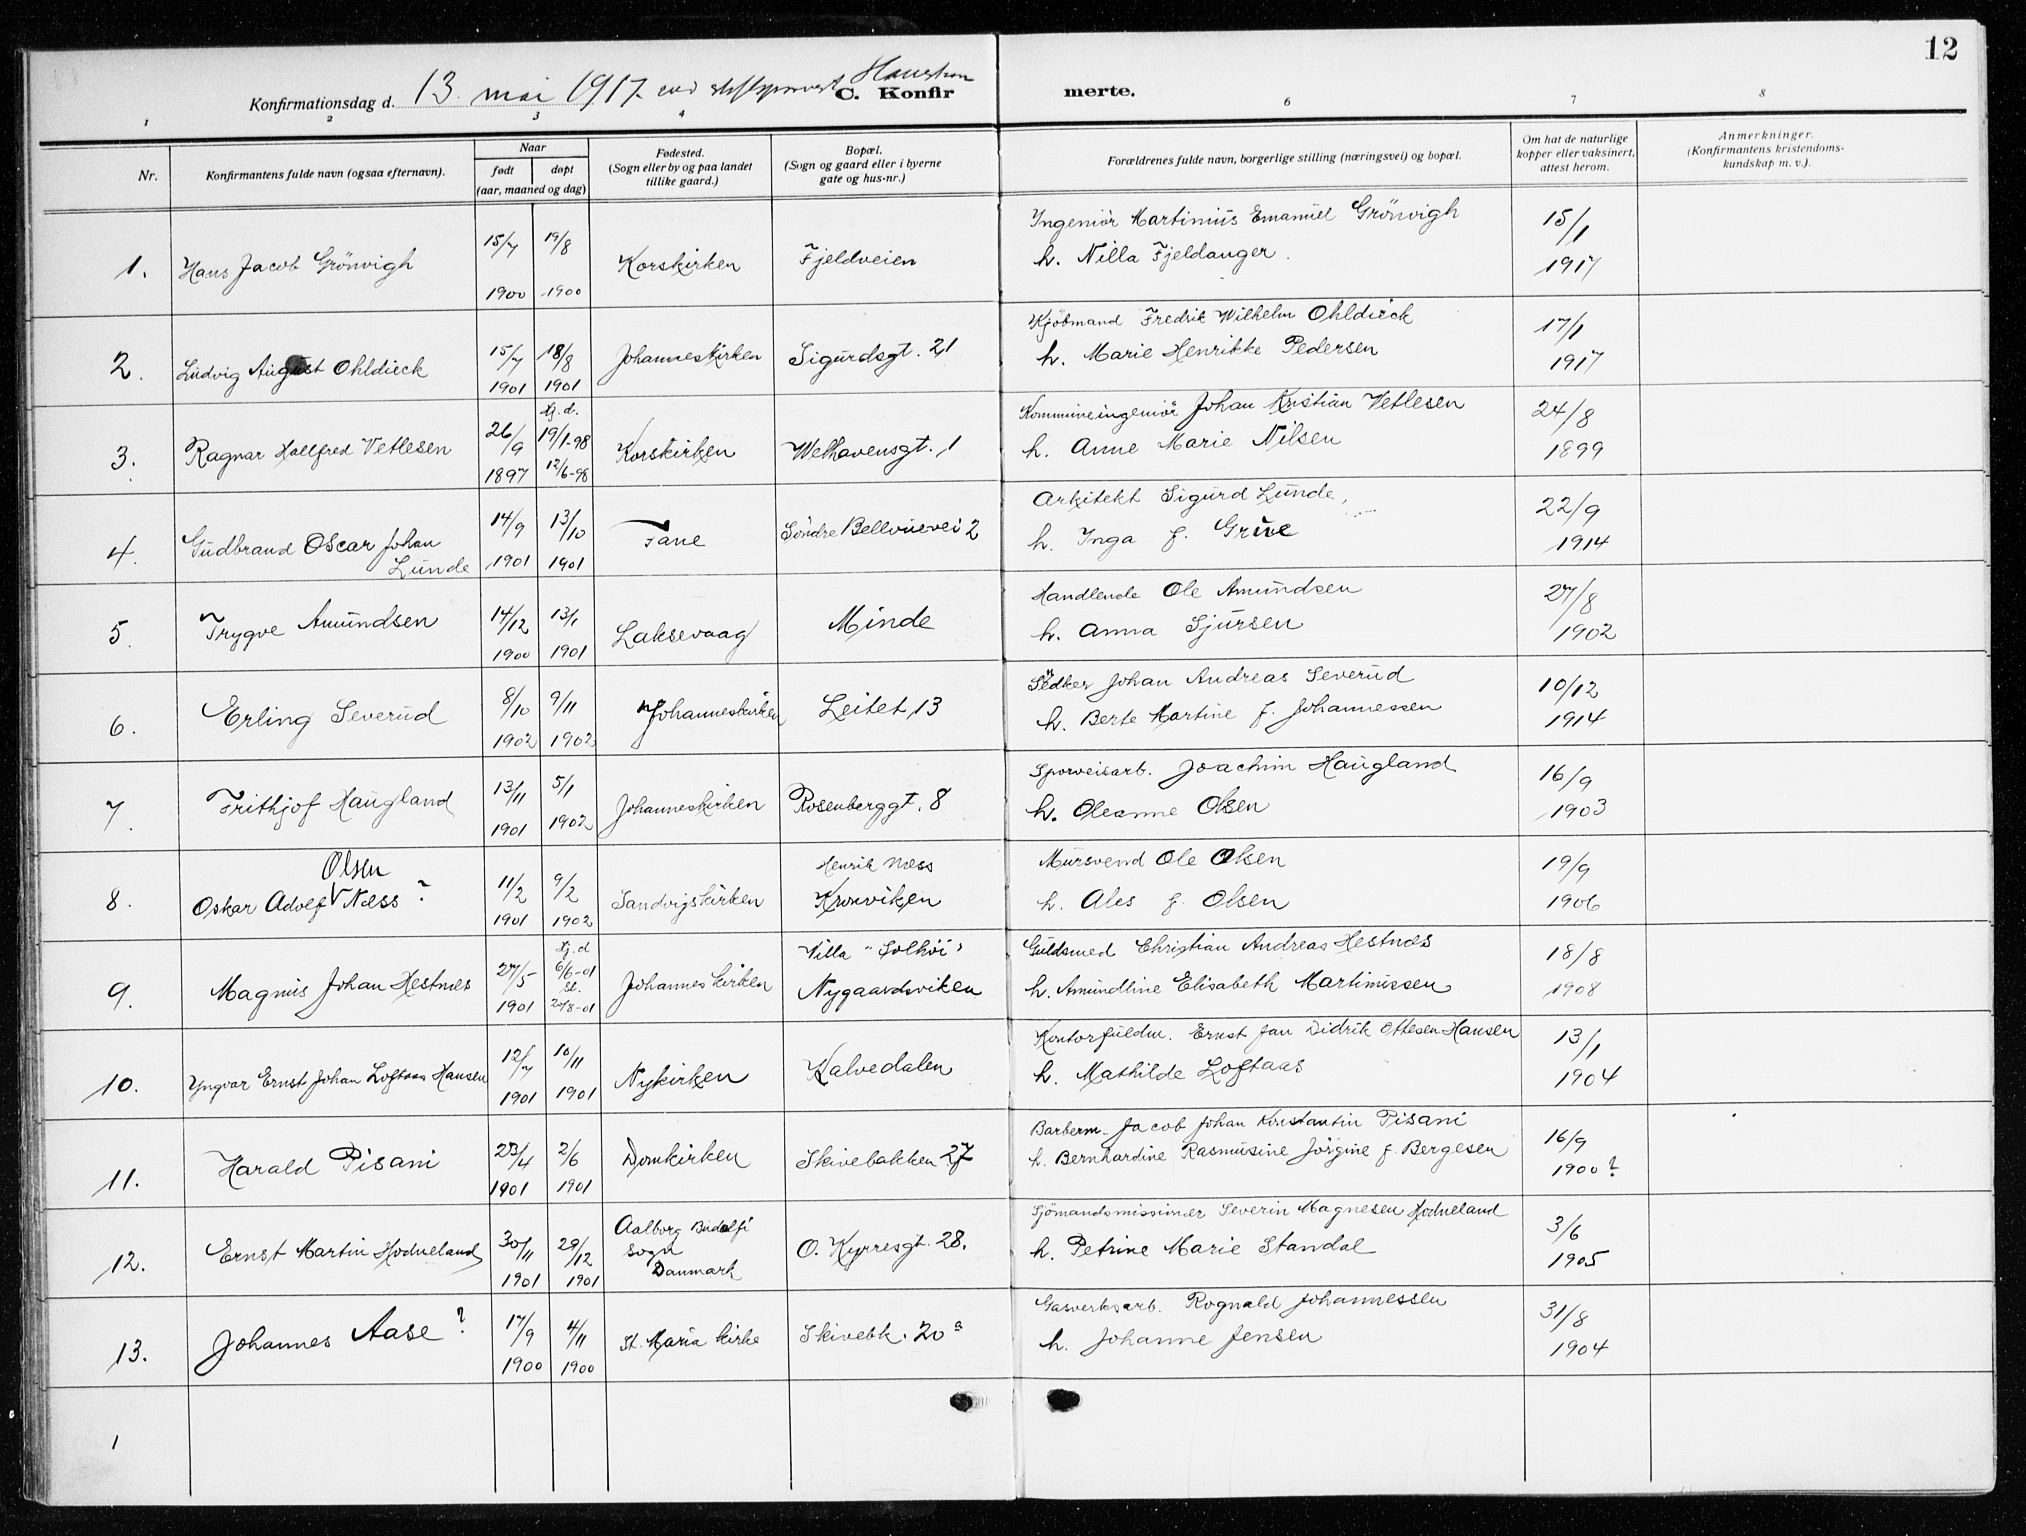 12
Konfirmationsdag d. 13. mai 1917. ved stiftsprovst Haushan C. Konfirmerte.
1 2 3 4 6 7 8
Nr. Konfirmantens fulde navn (ogsaa efternavn). Naar født døpt (aar, maaned og dag) Fødested. (Sogn eller by og paa landet tillike gaard.) Bopæl. (Sogn og gaard eller i byerne gate og hus-nr.) Forældrenes fulde navn, borgerlige stilling (næringsvei) og bopæl. Om hat de naturlige kopper eller vaksinert, attest herom. Anmerkninger. (Konfirmantens kristendomskundskap m. v.).
1. Hans Jacob Grönvigh 15/7 1900 19/8 1900 Korskirken Fjeldveien Ingeniør Martinius Emanuel Grönvigh
h. Nilla Fjeldanger. 15/1 1917
2. Ludvig August Ohldieck 15/7 1901 18/8 1901 Johanneskirken Sigurdsgt. 21 Kjöbmand Fredrik Wilhelm Ohldieck
h. Marie Henrikke Pedersen 17/1 1917
3. Ragnar Hallfred Vetlesen 26/9 1897 Hj. d. 19/1-98 12/6-98 Korskirken Welhavensgt. 1 Kommuneingeniör Johan Kristian Vetlesen
h. Anne Marie Nilsen 24/8 1899
4. Gudbrand Oscar Johan Lunde 14/9 1901 13/10 1901 Fane Söndre Bellvuevei 2 Arkitekt Sigurd Lunde,
h. Inga f. Grüe 22/9 1914
5. Trygve Amundsen 14/12 1900 13/1 1901 Laksevaag Minde Handlende Ole Amundsen
h. Anna Sjursen 27/8 1902
6. Erling Severud 8/10 1902 9/11 1902 Johanneskirken Leitet 13 Johan Andreas Severud
h. Berte Martine f. Johannessen 10/12 1914
7. Frithjof Haugland 13/11 1901 5/1 1902 Johanneskirken Rosenberggt. 8 Sporveisarb. Joachim Haugland
h. Oleanne Olsen 16/9 1903
8. Oskar Adolf Olsen Næss ? 11/2 1901 9/2 1902 Sandvigskirken Henrik Næss Kronviken Mursvend Ole Olsen
h. Ales f. Olsen 19/9 1906
9. Magnus Johan Hestnes 27/5 1901 Hj. d 6/6-01 st. 25/8-01 Johanneskirken Villa "Solhöi" Nygaardsviken Guldsmed Christian Andreas Hestnæs
h. Amundline Elisabeth Martinussen 18/8 1908
10. Yngvar Ernst Johan Loftaas Hansen 12/7 1901 10/11 1901 Nykirken Kalvedalen Kontorfuldm. Ernst Jan Didrik Ottesen Hansen
h. Mathilde Loftaas 13/1 1904
11. Harald Pisani 23/4 1901 2/6 1901 Domkirken Skivebakken 27 Barberm. Jacob Johan Konstantin Pisani
h. Bernhardine Rasmusine Jörgine f. Bergesen 16/9 1900 ?
12. Ernst Martin Hodneland 30/11 1901 29/12 1901 Aalborg Budolfi Sogn Danmark O. Kyrresgt. 28. Sjömandsmissionær Severin Magnesen Hodneland
h. Petrine Marie Standal 3/6 1905
13. Johannes Aase ? 17/9 1900 4/11 1900 St. Maria Kirke Skivebk. 20 a Gasverksarb. Rognald Johannessen
h. Johanne Jensen 31/8 1904
1